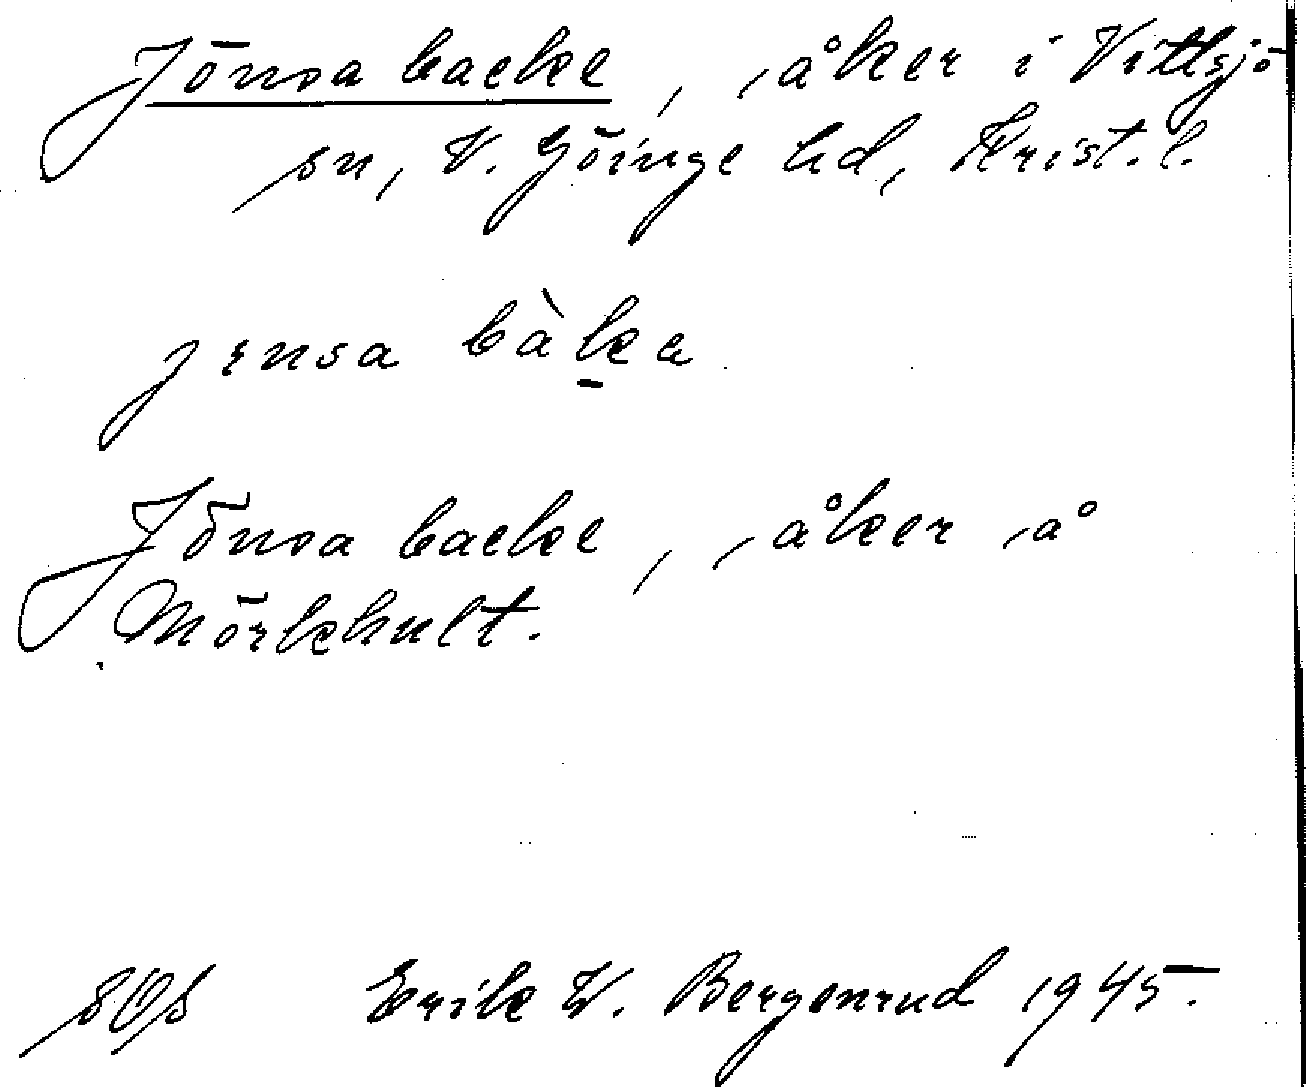 Jönsa backe, åker i Vittsjö
sn, V. Göinge hd, Krist. l.
Jönsa backe, åker å
Mörkhult.
Erik W. Bergenrud 1945.